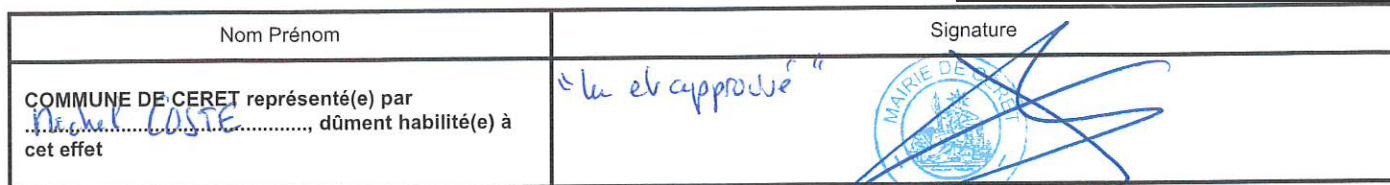 Nom Prénom
Signature
COMMUNE DE CERET représenté(e) par
Michel COSTE, dûment habilité(e) à
cet effet
"lu et approuvé"
MAIRIE DE CERET